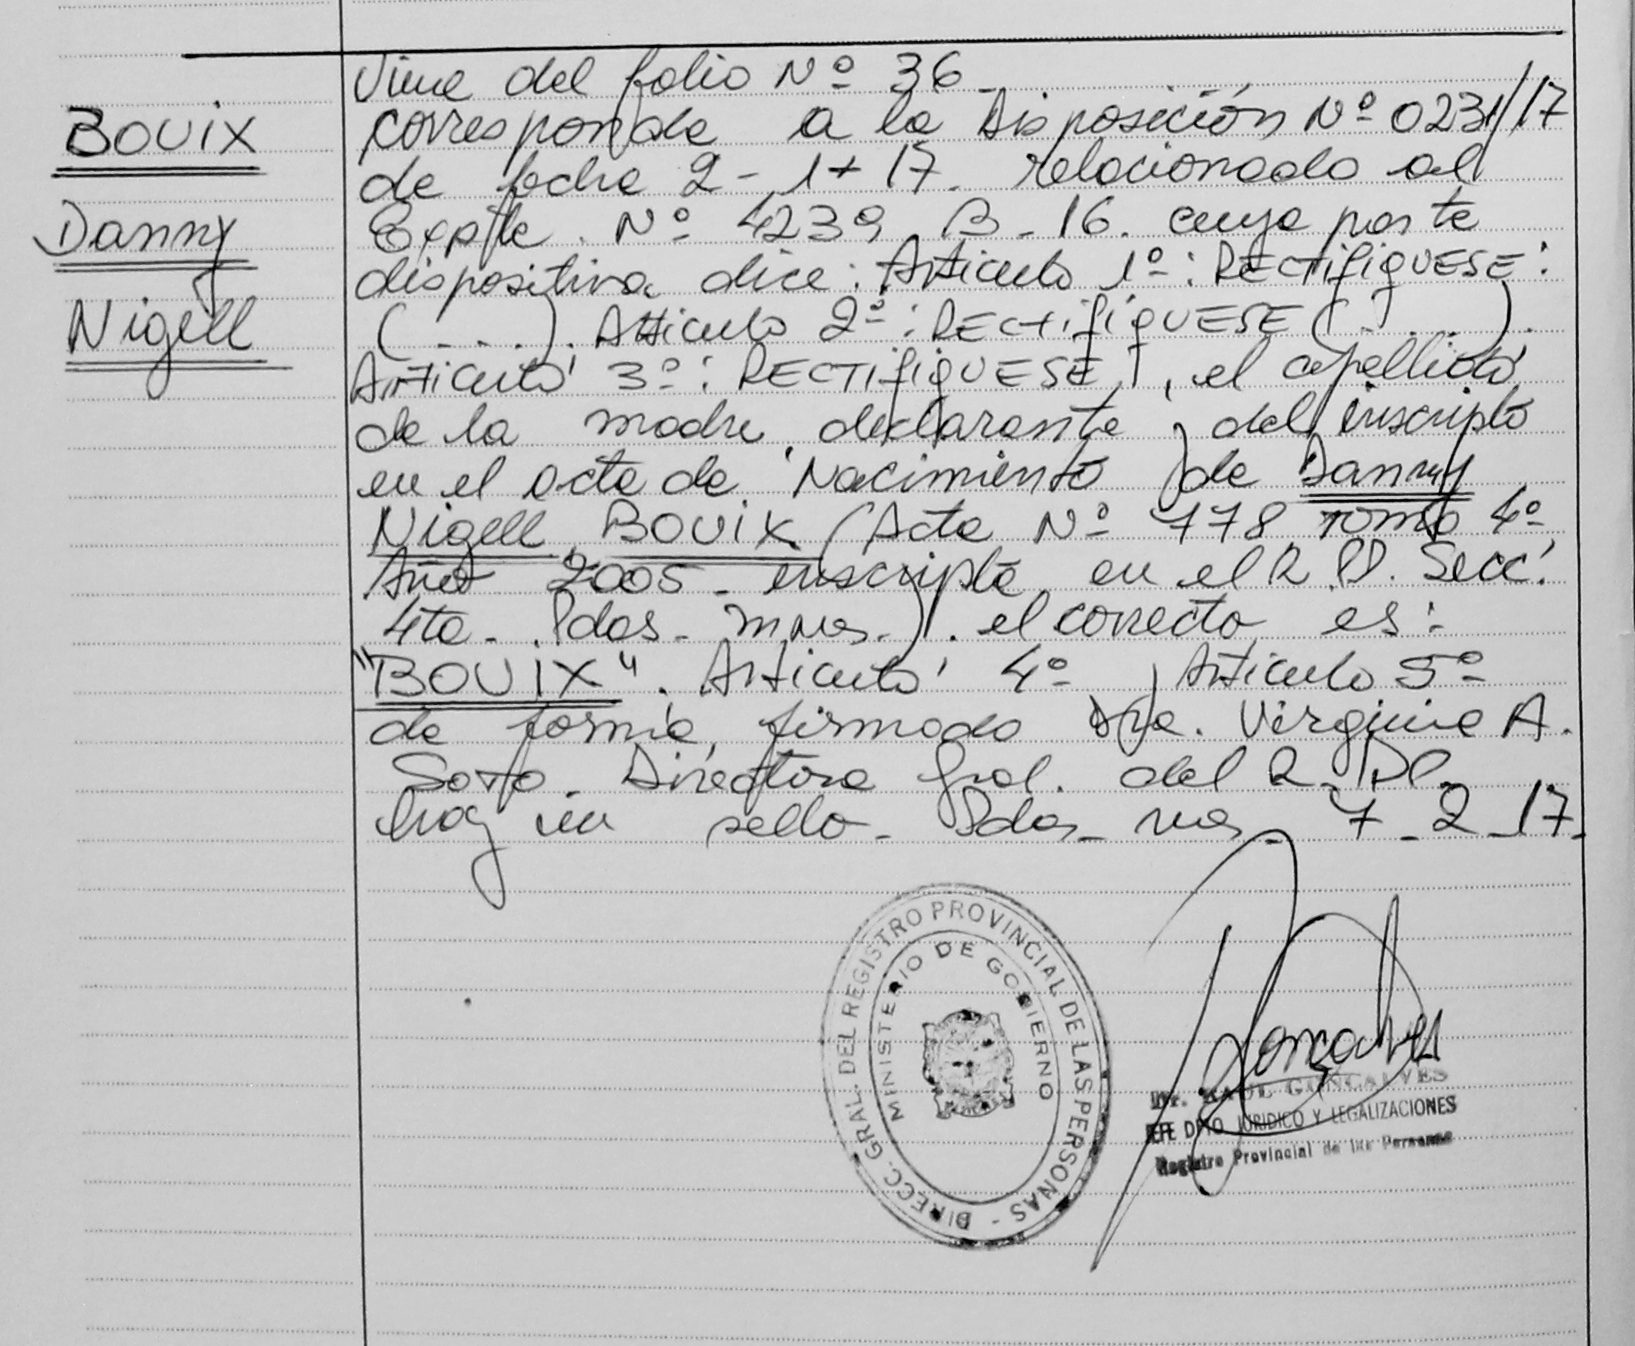 BOUIX
Danny
Nigell
Viene del folio Nº 36_
corresponde a la Disposición Nº 0231/17
de fecha 2-1-17. relacionado al
Expte. Nº 4239 B-16. cuya parte
dispositiva dice: Articulo 1º: RECTIFIQUESE:
(...). Articulo 2º: RECTIFIQUESE (....).
Articulo 3º: RECTIFIQUESE, el apellido
de la madre declarante, del inscripto
en el acta de Nacimiento de Danny
Nigell BOUIX (Acta Nº 778 Tomo 4º
Año 2005 - inscripta en el R.P. Secc.
4ta. Pdas. Mnes.). el correcto es:
"BOUIX". Articulo 4º, Articulo 5º
de forma, firmado Dra. Virginia A.
Soto. Directora Gral. del R.P.P.
hay un sello. Pdas. Mes. 7-2-17.
DIRECC. GRAL. DEL REGISTRO PROVINCIAL DE LAS PERSONAS -
MINISTERIO DE GOBIERNO
Gonçalves
Dr. RAUL GONCALVES
JEFE DPTO JURIDICO Y LEGALIZACIONES
Registro Provincial de las Personas